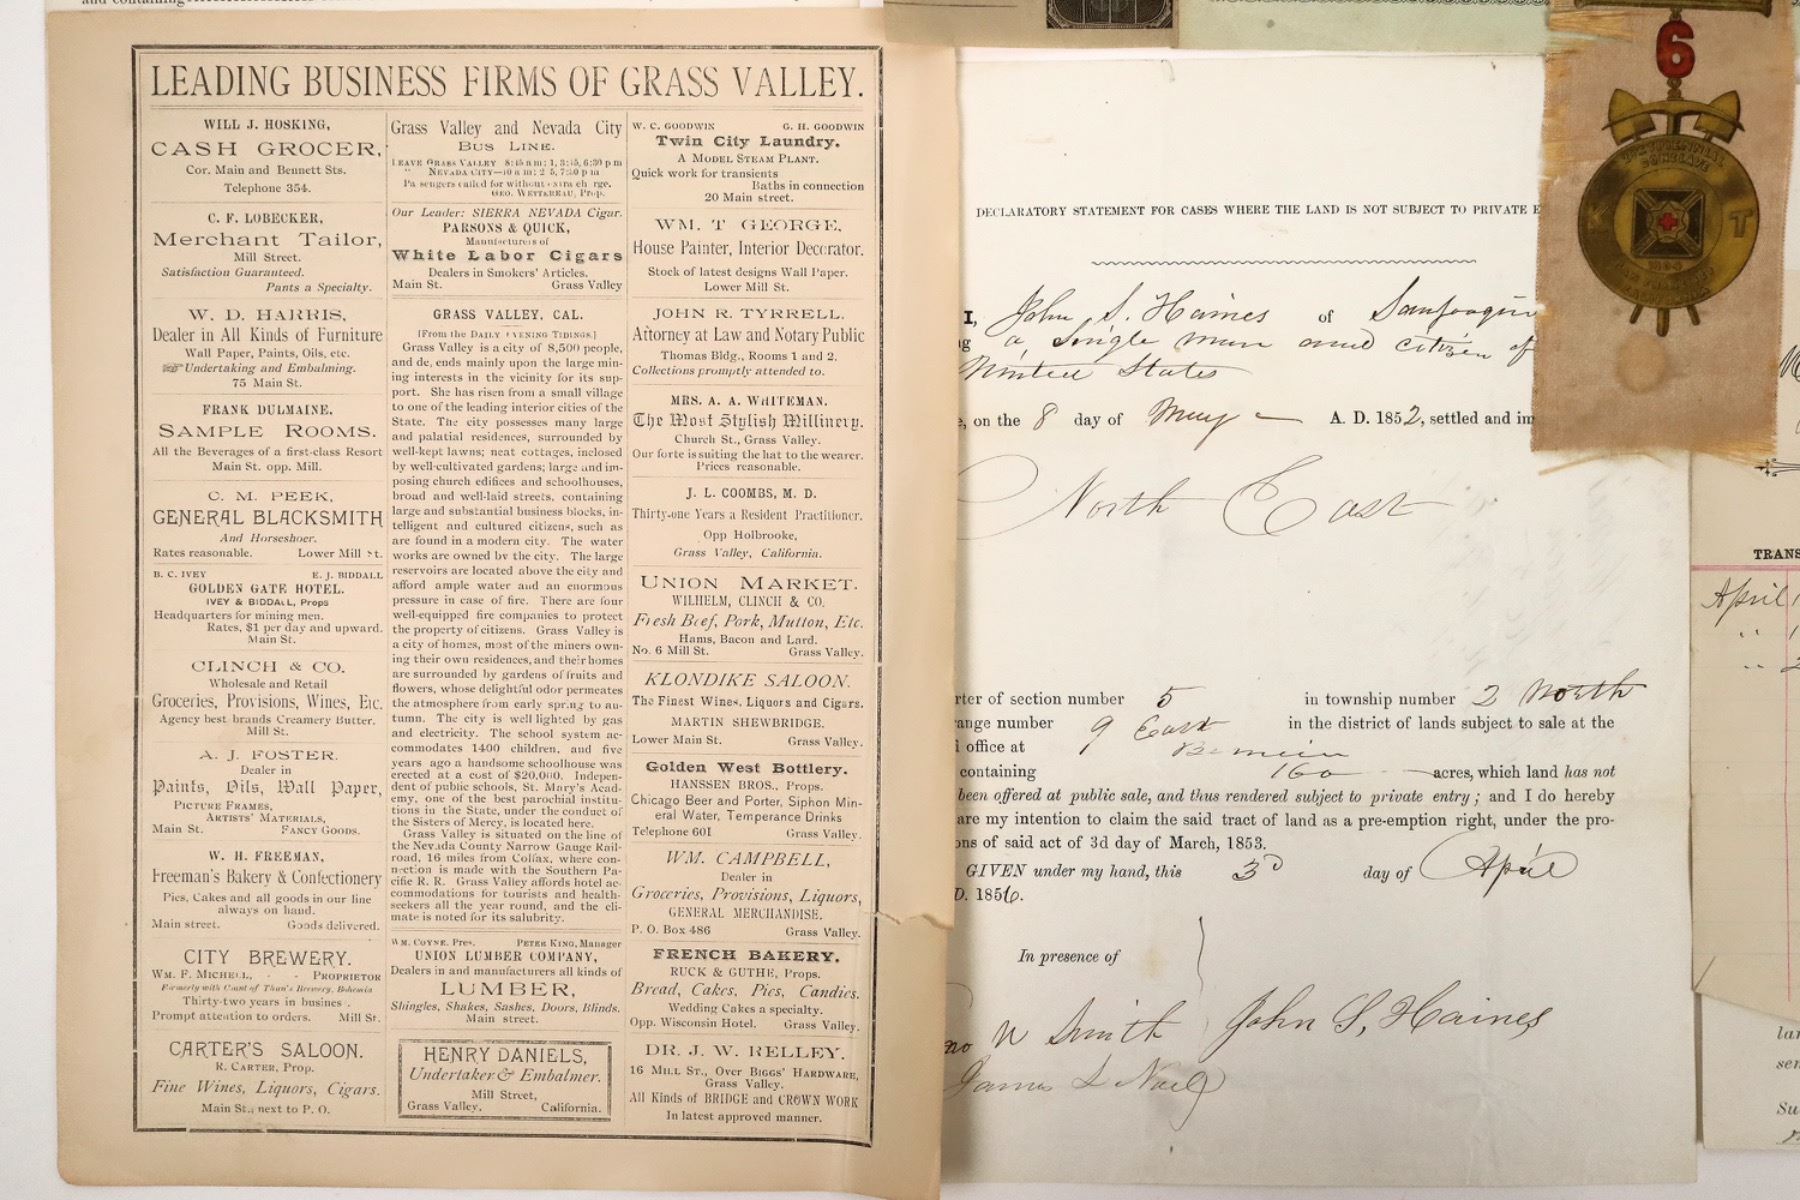 and containing
LEADING BUSINESS FIRMS OF GRASS VALLEY.
WILL J. HOSKING,
CASH GROCER,
Cor. Main and Bennett Sts.
Telephone 354.
C. F. LOBECKER,
Merchant Tailor,
Mill Street.
Satisfaction Guaranteed.
Pants a Specialty.
W. D. HARRIS,
Dealer in All Kinds of Furniture
Wall Paper, Paints, Oils, etc.
☞Undertaking and Embalming.
75 Main St.
FRANK DULMAINE,
SAMPLE ROOMS.
All the Beverages of a first-class Resort
Main St. opp. Mill.
C. M. PEEK,
GENERAL BLACKSMITH
And Horseshoer.
Rates reasonable. Lower Mill St.
B. C. IVEY E. J. BIDDALL
GOLDEN GATE HOTEL.
IVEY & BIDDALL, Props
Headquarters for mining men.
Rates, $1 per day and upward.
Main St.
CLINCH & CO.
Wholesale and Retail
Groceries, Provisions, Wines, Etc.
Agency best brands Creamery Butter.
Mill St.
A. J. FOSTER.
Dealer in
Paints, Oils, Wall Paper,
PICTURE FRAMES,
ARTISTS' MATERIALS,
Main St. FANCY GOODS.
W. H. FREEMAN,
Freeman's Bakery & Confectionery
Pies, Cakes and all goods in our line
always on hand.
Main street. Goods delivered.
CITY BREWERY.
WM. F. MICHELL, - - PROPRIETOR
Formerly with Count of Thun's Brewery, Bohemia
Thirty-two years in busines .
Prompt attention to orders. Mill St.
CARTER'S SALOON.
R. CARTER, Prop.
Fine Wines, Liquors, Cigars.
Main St., next to P. O.
Grass Valley and Nevada City
BUS LINE.
LEAVE GRASS VALLEY 8:45 a m: 1, 3:15, 6:30 p m
" NEVADA CITY—10 a m: 2 5, 7:30 p m
Pa sengers called for without extra ch rge.
GEO. WETTERAU, Prop.
Our Leader: SIERRA NEVADA Cigar.
PARSONS & QUICK,
Manufacturers of
White Labor Cigars
Dealers in Smokers' Articles.
Main St. Grass Valley
GRASS VALLEY, CAL.
[From the DAILY EVENING TIDINGS.]
Grass Valley is a city of 8,500 people,
and de, ends mainly upon the large min-
ing interests in the vicinity for its sup-
port. She has risen from a small village
to one of the leading interior cities of the
State. The city possesses many large
and palatial residences, surrounded by
well-kept lawns; neat cottages, inclosed
by well-cultivated gardens; large and im-
posing church edifices and schoolhouses,
broad and well-laid streets, containing
large and substantial business blocks, in-
telligent and cultured citizens, such as
are found in a modern city. The water
works are owned by the city. The large
reservoirs are located above the city and
afford ample water and an enormous
pressure in case of fire. There are four
well-equipped fire companies to protect
the property of citizens. Grass Valley is
a city of homes, most of the miners own-
ing their own residences, and their homes
are surrounded by gardens of fruits and
flowers, whose delightful odor permeates
the atmosphere from early spring to au-
tumn. The city is well lighted by gas
and electricity. The school system ac-
commodates 1400 children, and five
years ago a handsome schoolhouse was
erected at a cost of $20,000. Indepen-
dent of public schools, St. Mary's Acad-
emy, one of the best parochial institu-
tions in the State, under the conduct of
the Sisters of Mercy, is located here.
Grass Valley is situated on the line of
the Nevada County Narrow Gauge Rail-
road, 16 miles from Colfax, where con-
nection is made with the Southern Pa-
cific R. R. Grass Valley affords hotel ac-
commodations for tourists and health-
seekers all the year round, and the cli-
mate is noted for its salubrity.
WM. COYNE, Pres. PETER KING, Manager
UNION LUMBER COMPANY,
Dealers in and manufacturers all kinds of
LUMBER,
Shingles, Shakes, Sashes, Doors, Blinds.
Main street.
HENRY DANIELS,
Undertaker & Embalmer.
Mill Street,
Grass Valley, California.
W. C. GOODWIN G. H. GOODWIN
Twin City Laundry.
A MODEL STEAM PLANT.
Quick work for transients
Baths in connection
20 Main street.
WM. T GEORGE,
House Painter, Interior Decorator.
Stock of latest designs Wall Paper.
Lower Mill St.
JOHN R. TYRRELL.
Attorney at Law and Notary Public
Thomas Bldg., Rooms 1 and 2.
Collections promptly attended to.
MRS. A. A. WHITEMAN.
The Most Stylish Millinery.
Church St., Grass Valley.
Our forte is suiting the hat to the wearer.
Prices reasonable.
J. L. COOMBS, M. D.
Thirty-one Years a Resident Practitioner.
Opp Holbrooke,
Grass Valley, California.
UNION MARKET.
WILHELM, CLINCH & CO.
Fresh Beef, Pork, Mutton, Etc.
Hams, Bacon and Lard.
No. 6 Mill St. Grass Valley.
KLONDIKE SALOON.
The Finest Wines, Liquors and Cigars.
MARTIN SHEWBRIDGE.
Lower Main St. Grass Valley.
Golden West Bottlery.
HANSSEN BROS., Props.
Chicago Beer and Porter, Siphon Min-
eral Water, Temperance Drinks
Telephone 601 Grass Valley.
WM. CAMPBELL,
Dealer in
Groceries, Provisions, Liquors,
GENERAL MERCHANDISE.
P. O. Box 486 Grass Valley.
FRENCH BAKERY.
RUCK & GUTHE, Props.
Bread, Cakes, Pies, Candies.
Wedding Cakes a specialty.
Opp. Wisconsin Hotel. Grass Valley.
DR. J. W. KELLEY.
16 MILL ST., OVER BIGGS' HARDWARE,
Grass Valley.
All Kinds of BRIDGE and CROWN WORK
In latest approved manner.
DECLARATORY STATEMENT FOR CASES WHERE THE LAND IS NOT SUBJECT TO PRIVATE E
I, John S. Haines of Sanjoaquin
g a single man and citizen of
United States
, on the 8 day of May A. D. 1852, settled and im
North East
rter of section number 5 in township number 2 North
ange number 9 East in the district of lands subject to sale at the
office at
containing 160 acres, which land has not
been offered at public sale, and thus rendered subject to private entry; and I do hereby
are my intention to claim the said tract of land as a pre-emption right, under the pro-
ons of said act of 3d day of March, 1853.
GIVEN under my hand, this 3d day of April
D. 1856.
In presence of
no W Smith John S, Haines
James L Nael
6
TRIENNIAL
CONCLAVE
K T
SAN FRANCISCO
CALIFORNIA
TRANS
April 1
" 1
" 2
lan
sen
Su